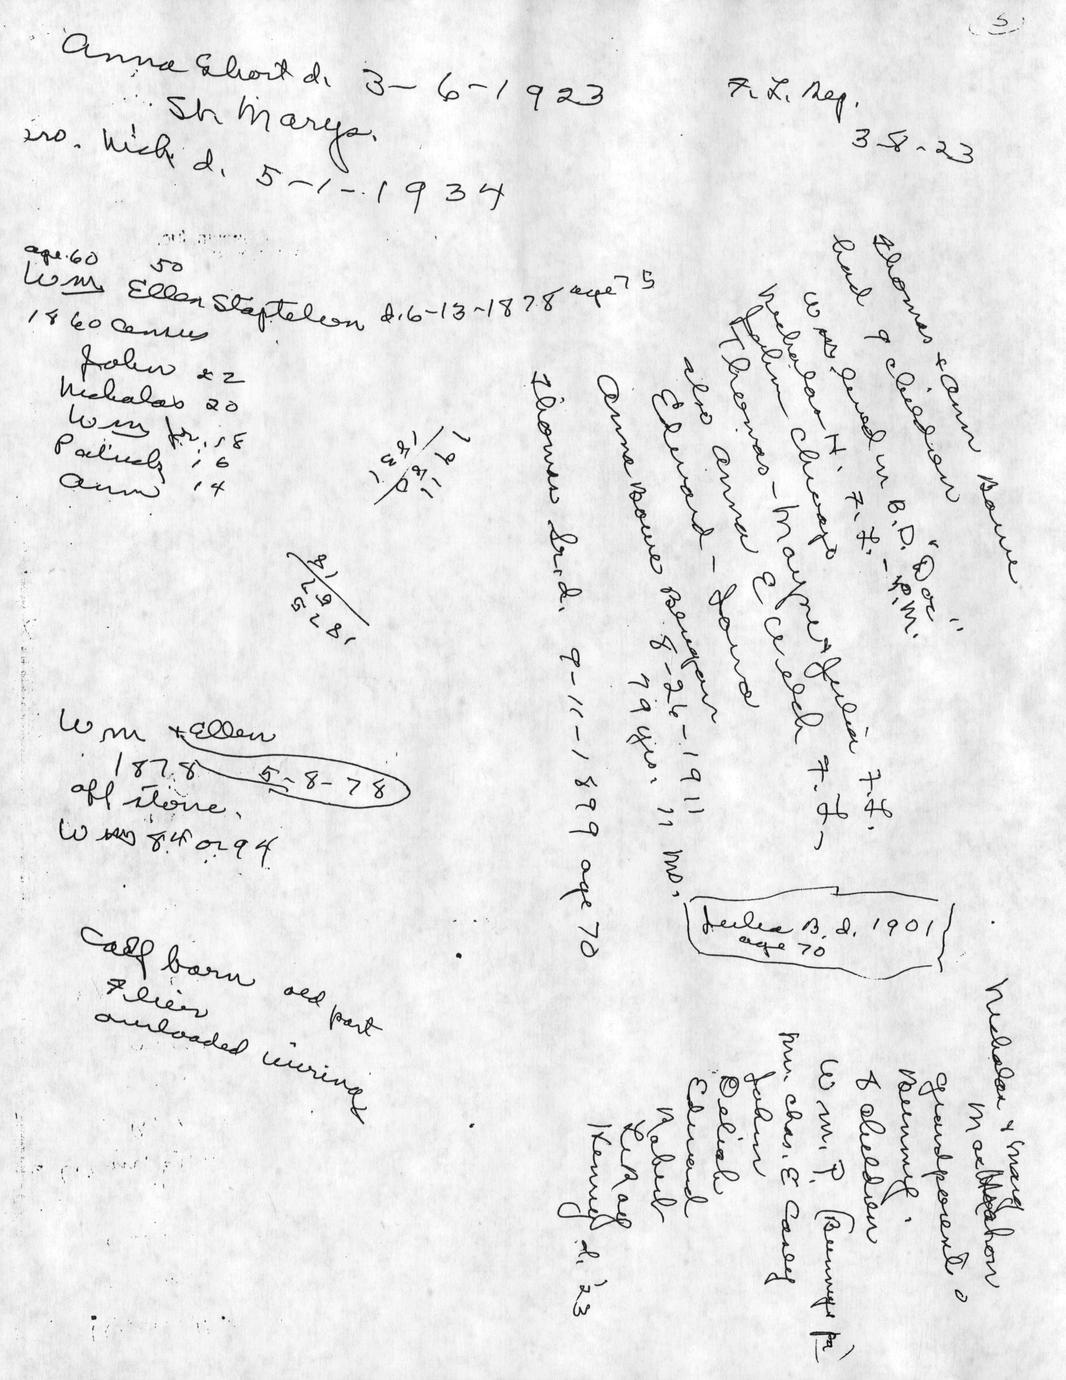 5
Anna Short d. 3-6-1923
St. Marys.
bro. Nick d. 5-1-1934
F. L. Reg.
3-8-23
age 60 50
Wm Ellen Stapleton d. 6-13-1878 age 75
1860 Census
John 22
Nicholas 20
Wm Jr. 18
Patrick 16
Ann 14
Wm + Ellen
1878 5-8-78
off stone.
Wm 84 or 94
Calf barn old part
Flier
overloaded wiring
Thomas + Ann Bowe
had 9 children
Wm lived in B.D. "Doc"
Nicholas H. F.L. - P.M.
John Chicago
Thomas - Mayme + Julia F.L.
also Anna E Cield F.L.
Edward - Iowa
Anna Bowe 8-26-1911
79 yrs. 11 mo.
Thomas Sr. d. 9-11-1899 age 70
Julia B. d. 1901
age 70
Nicholas + Mary
Mac
grandparents
Bunny.
8 children
Wm. P. (Bunnys pa)
Mr. Chas. E Casey
John
Delilah
Edward
Robert
LeRoy
Henry d. '23